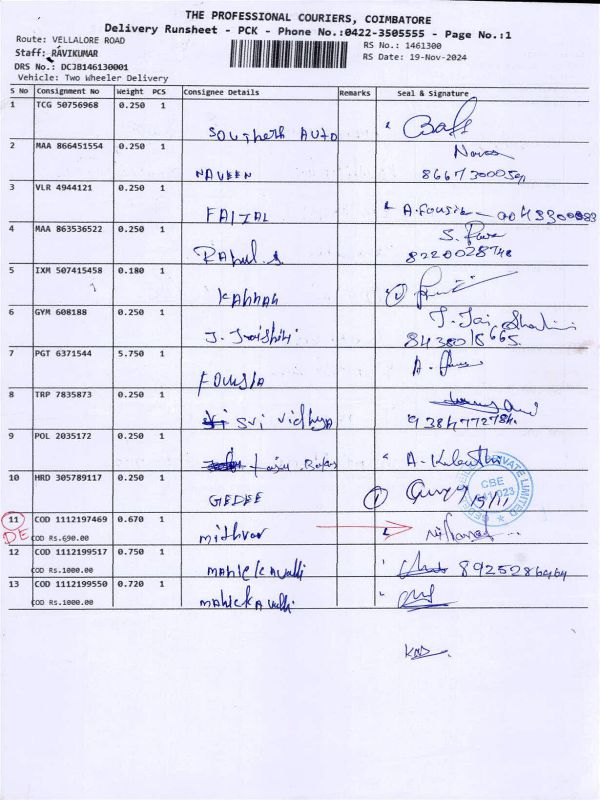 THE PROFESSIONAL COURIERS, COIMBATORE
Delivery Runsheet - PCK - Phone No.:0422-3505555 - Page No.:1
Route: VELLALORE ROAD
RS No.: 1461300
Staff: RAVIKUMAR
RS Date: 19-Nov-2024
DRS No.: DCJB146130001
Vehicle: Two Wheeler Delivery
S No Consignment No Weight PCS Consignee Details Remarks Seal & Signature
1 TCG 50756968 0.250 1
Southern Auto
2 MAA 866451554 0.250 1
NAVEEN
3 VLR 4944121 0.250 1
FAIZAL A.Fousia
4 MAA 863536522 0.250 1
Rahul.s 8220028748
5 IXM 507415458 0.180 1
KANNAN
6 GYM 608188 0.250 1
J.
7 PGT 6371544 5.750 1
FOUSIA
8 TRP 7835873 0.250 1
Sri Vidhya 9384772784
9 POL 2035172 0.250 1
10 HRD 305789117 0.250 1
GEDEE
CBE
PRIVATE LIMITED
11 COD 1112197469 0.670 1
DE COD Rs.690.00
Mithran
12 COD 1112199517 0.750 1
COD Rs.1000.00
Manickavalli
13 COD 1112199550 0.720 1
COD Rs.1000.00
Manickavalli